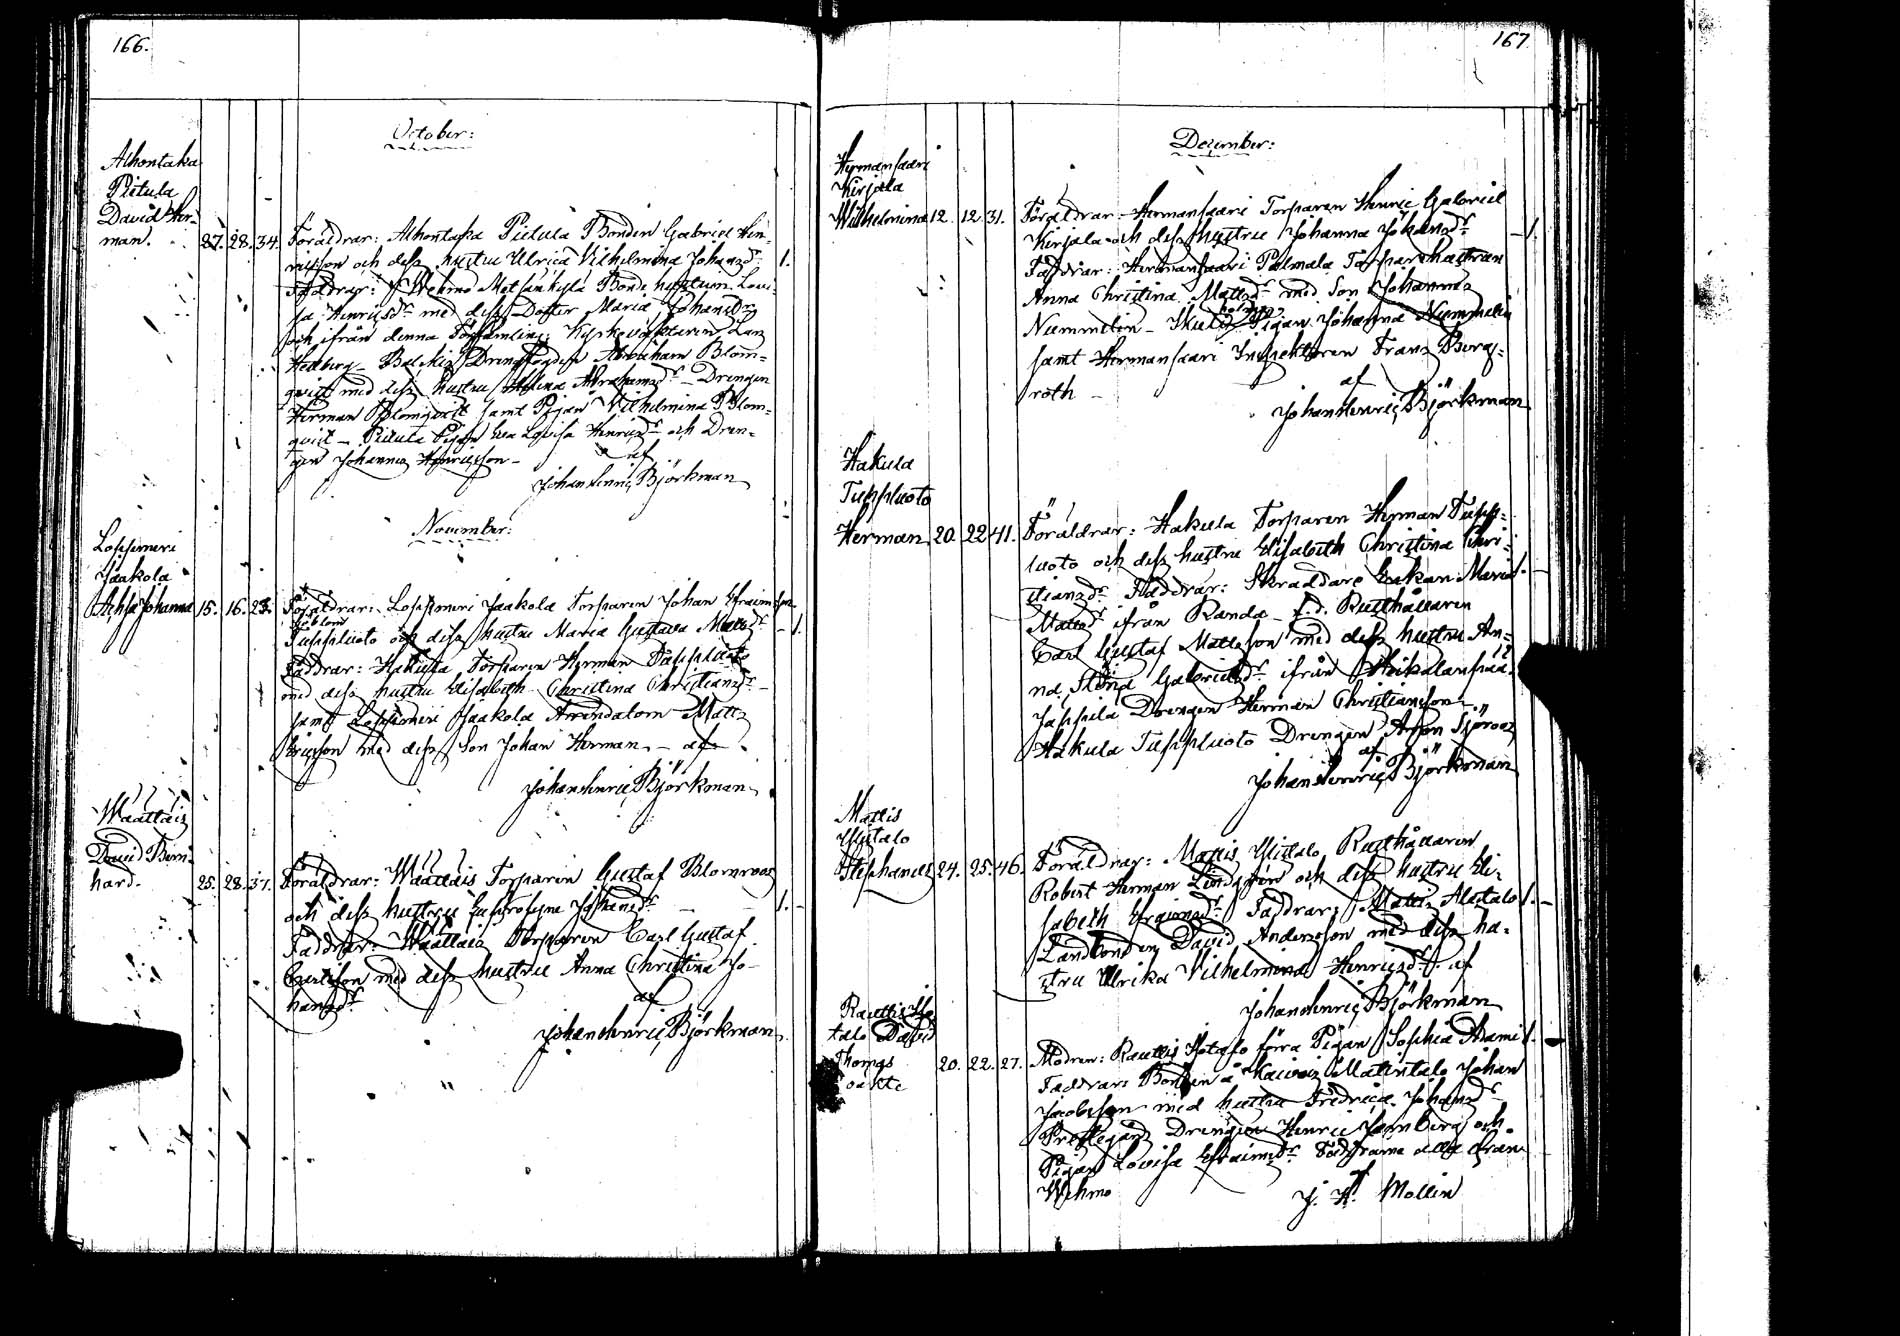 166.
October:
Alhontaka
Pietula
David Her-
man.
27. 28. 34. Föräldrar: Alhontaka Pietula Bonden Gabriel Hen-
ricsson och dess hustru Ulrica Vilhelmina Johansdr 1.
Faddrar: Wehmo Bonde hustrun Lovi-
sa Henricsdr med dess Dotter Maria Johansdr
och ifrån denna Församling: Kyrkovaktaren
Hedberg - Drengfogden Abraham Blom-
qvist med dess hustru Helena Abrahamsdr - Drengen
Herman Blomqvist samt Pigan Vilhelmina Blom-
qvist - Pietula Pigan Eva Lovisa Henricsdr och Dren-
gen Johannes Henricsson -
af
Johan Henric Björkman
November:
Loppmeri
Jaakola
Johanna 15. 16. 23. Föräldrar: Loppmeri Jaakola Torparen Johan Efraimsson
Tuppluoto och dess hustru Maria Gustava Mattsdr - 1.
Faddrar: Hakula Torparen Herman Tuppluoto
med dess hustru Elisabeth Christina Christiansdr -
samt Loppmeri Jaakola Arrendatorn Matts
Ericsson med dess Son Johan Herman - af
Johan Henric Björkman
Waattais
David Bern-
hard. 25. 28. 37. Föräldrar: Waattais Torparen Gustaf Blomroos
och dess hustru Euphrosyne Johansdr - - 1. -
Faddrar: Waattais Torparen Carl Gustaf
Carlsson med dess hustru Anna Christina Jo-
hansdr
af
Johan Henric Björkman
167
December:
Hermansaari
Kirjala
Wilhelmina 12. 12. 31. Föräldrar: Hermansaari Torparen Henric Gabriel
Kirjala och dess hustru Johanna Johansdr - 1.
Faddrar: Hermansaari Palmala Torpare hustrun
Anna Christina Mattsdr med Son Johannes
Nummelin - Pigan Johanna Nummelin
samt Hermansaari Inspektoren Frans Berg-
roth -
af
Johan Henric Björkman
Hakula
Tuppluoto
Herman 20. 22. 41. Föräldrar: Hakula Torparen Herman Tupp-
luoto och dess hustru Elisabeth Christina Chri-
stiansdr Faddrar: Skräddare Enkan Maria 1. -
Mattsdr ifrån Randa - f.d. Rusthållaren
Carl Gustaf Mattsson med dess hustru An-
na Stina Gabrielsdr ifrån
Jappila Drengen Herman Christiansson -
Hakula Tuppluoto Drengen Aron Sjöroos
af
Johan Henric Björkman
Mattis
Ylistalo
Stephanus 24. 25. 46. Föräldrar: Mattis Ylistalo Rusthållaren
Robert Herman Lindgren och dess hustru Eli-
sabeth Efraimsdr Faddrar: Mattis Alastalo 1. -
Landbonden David Andersson med dess hu-
stru Ulrika Vilhelmina Henricsdr. af
Johan Henric Björkman
talo David
Thomas
oäkte 20. 22. 27. Modren: förra Pigan Sophia 1. -
Faddrar: Bonden å Matintalo Johan
Jacobsson med hustru Fredrica Johansdr
Prestegårds Drengen Henric och
Pigan Lovisa Efraimsdr Faddrarna alla från
Wehmo
af
J. H. Mollin